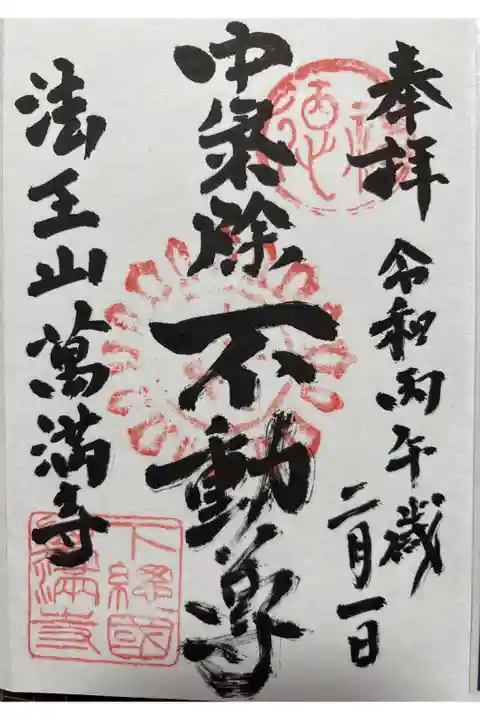 奉拝
令和丙午歳
二月一日
中氣除不動尊
法王山萬満寺
下総国
萬満寺